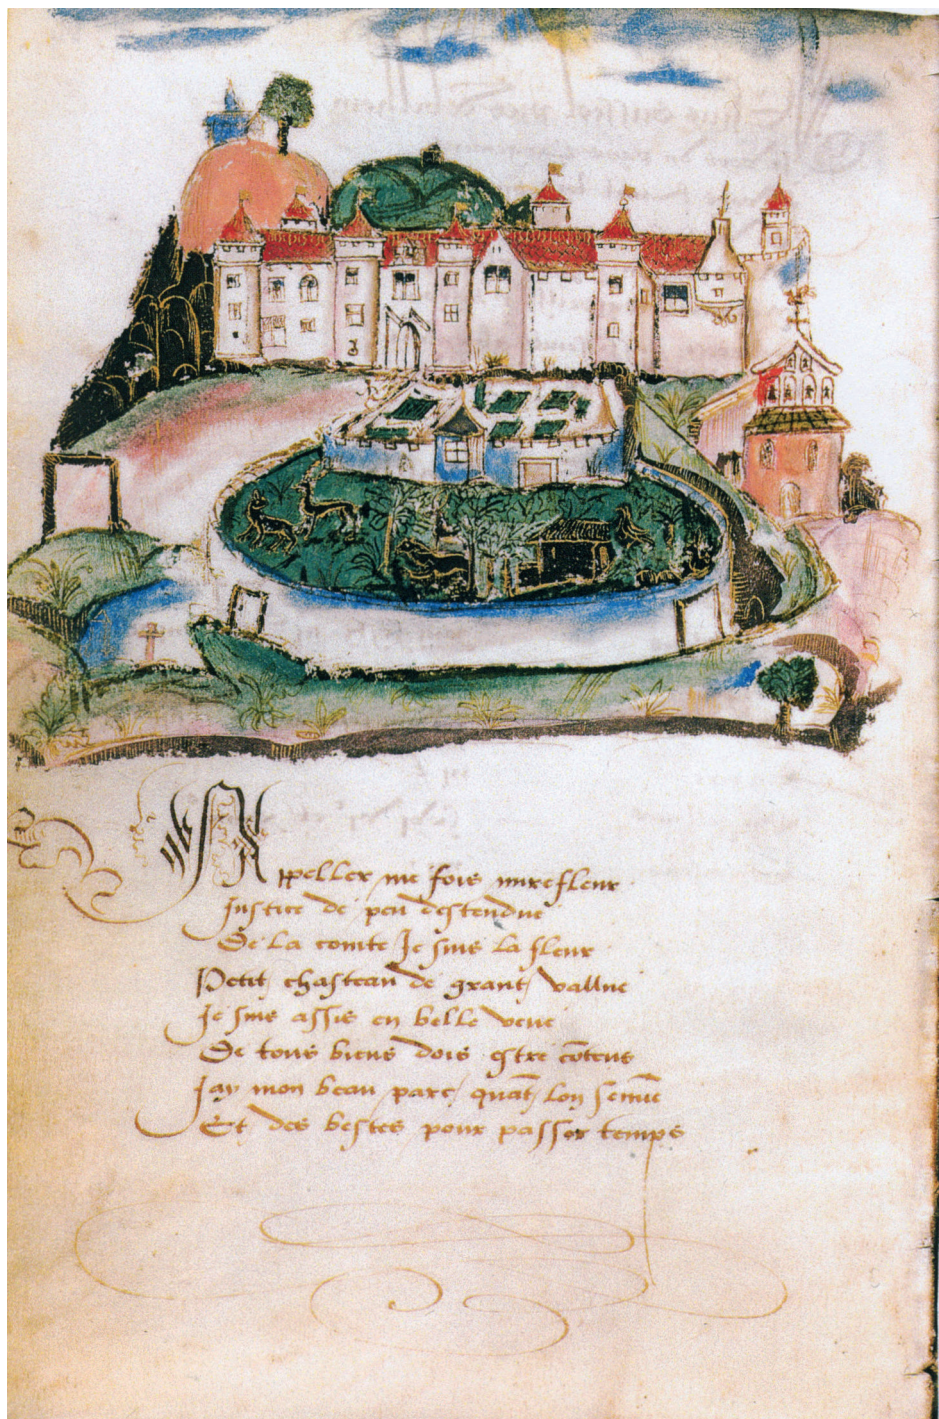 Appeller me fois mirefleur
Justice de peu destendue
De la comte Je suis la fleur
Petit chasteau de grant vallue
Je suis assis en belle veue
De tous biens dois estre cōtens
Jay mon beau parc quāt lon
Et des bestes pour passer temps